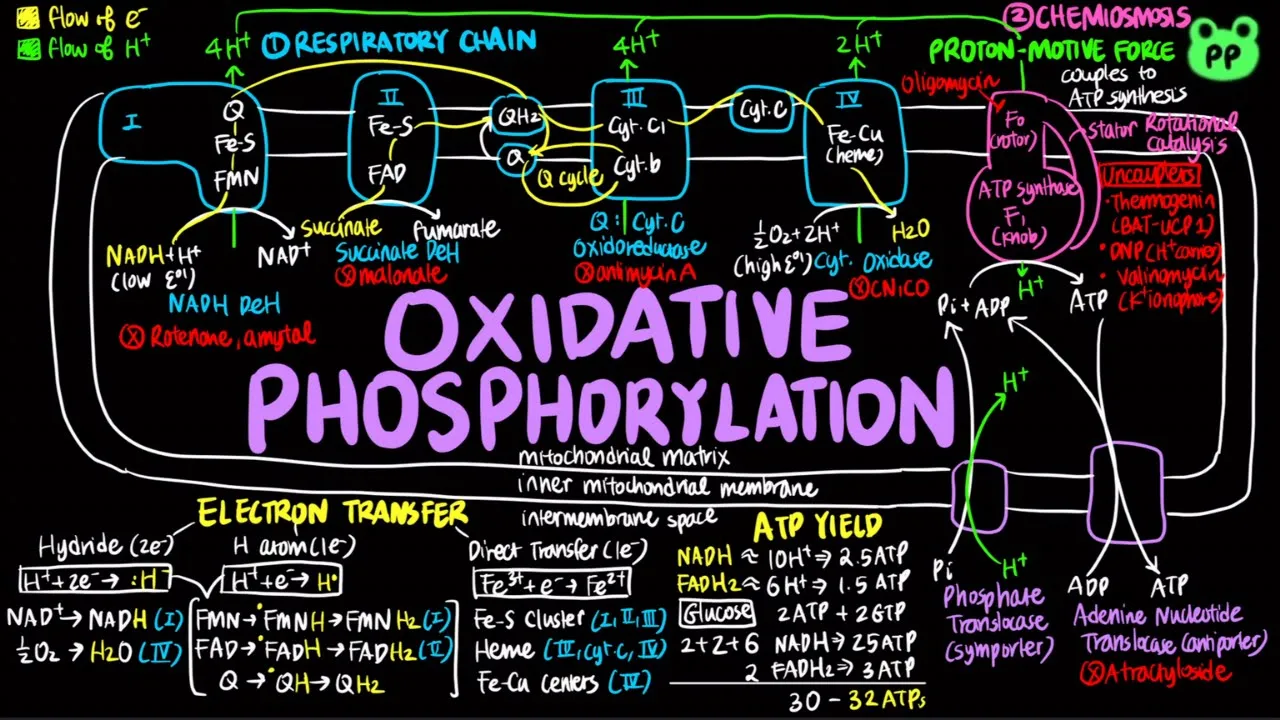 flow of e-
flow of H+
① RESPIRATORY CHAIN
② CHEMIOSMOSIS
PROTON-MOTIVE FORCE
PP
couples to
ATP synthesis
4H+
4H+
2H+
I
Q
Fe-S
FMN
NADH+H+
(low ε°')
NAD+
NADH DeH
ⓧ Rotenone, amytal
II
Fe-S
FAD
succinate
fumarate
Succinate DeH
ⓧ malonate
QH2
Q
Q cycle
III
Cyt. C1
Cyt. b
Q: Cyt. C
Oxidoreductase
ⓧ antimycin A
Cyt. C
IV
Fe-Cu
(heme)
½O2+2H+
(high ε°')
H2O
Cyt. Oxidase
ⓧ CN, CO
Oligomycin
Fo
(rotor)
ATP synthase
F1
(knob)
stator
Rotational
catalysis
Uncouplers
• Thermogenin
(BAT-UCP1)
• DNP (H+ carrier)
• Valinomycin
(K+ ionophore)
H+
Pi + ADP
ATP
OXIDATIVE
PHOSPHORYLATION
mitochondrial matrix
inner mitochondrial membrane
intermembrane space
H+
Pi
H+
Phosphate
Translocase
(symporter)
ADP
ATP
Adenine Nucleotide
Translocase (antiporter)
ⓧ Atractyloside
ELECTRON TRANSFER
Hydride (2e-)
H+ + 2e- → :H-
NAD+ → NADH (I)
½O2 → H2O (IV)
H atom (1e-)
H+ + e- → H•
FMN → •FMNH → FMNH2 (I)
FAD → •FADH → FADH2 (II)
Q → •QH → QH2
Direct Transfer (1e-)
Fe3+ + e- → Fe2+
Fe-S Cluster (I, II, III)
Heme (III, cyt.c, IV)
Fe-Cu Centers (IV)
ATP YIELD
NADH ≈ 10H+ ⇒ 2.5 ATP
FADH2 ≈ 6H+ ⇒ 1.5 ATP
Glucose 2ATP + 2GTP
2+2+6 NADH ⇒ 25ATP
2 FADH2 ⇒ 3 ATP
30 - 32 ATPs